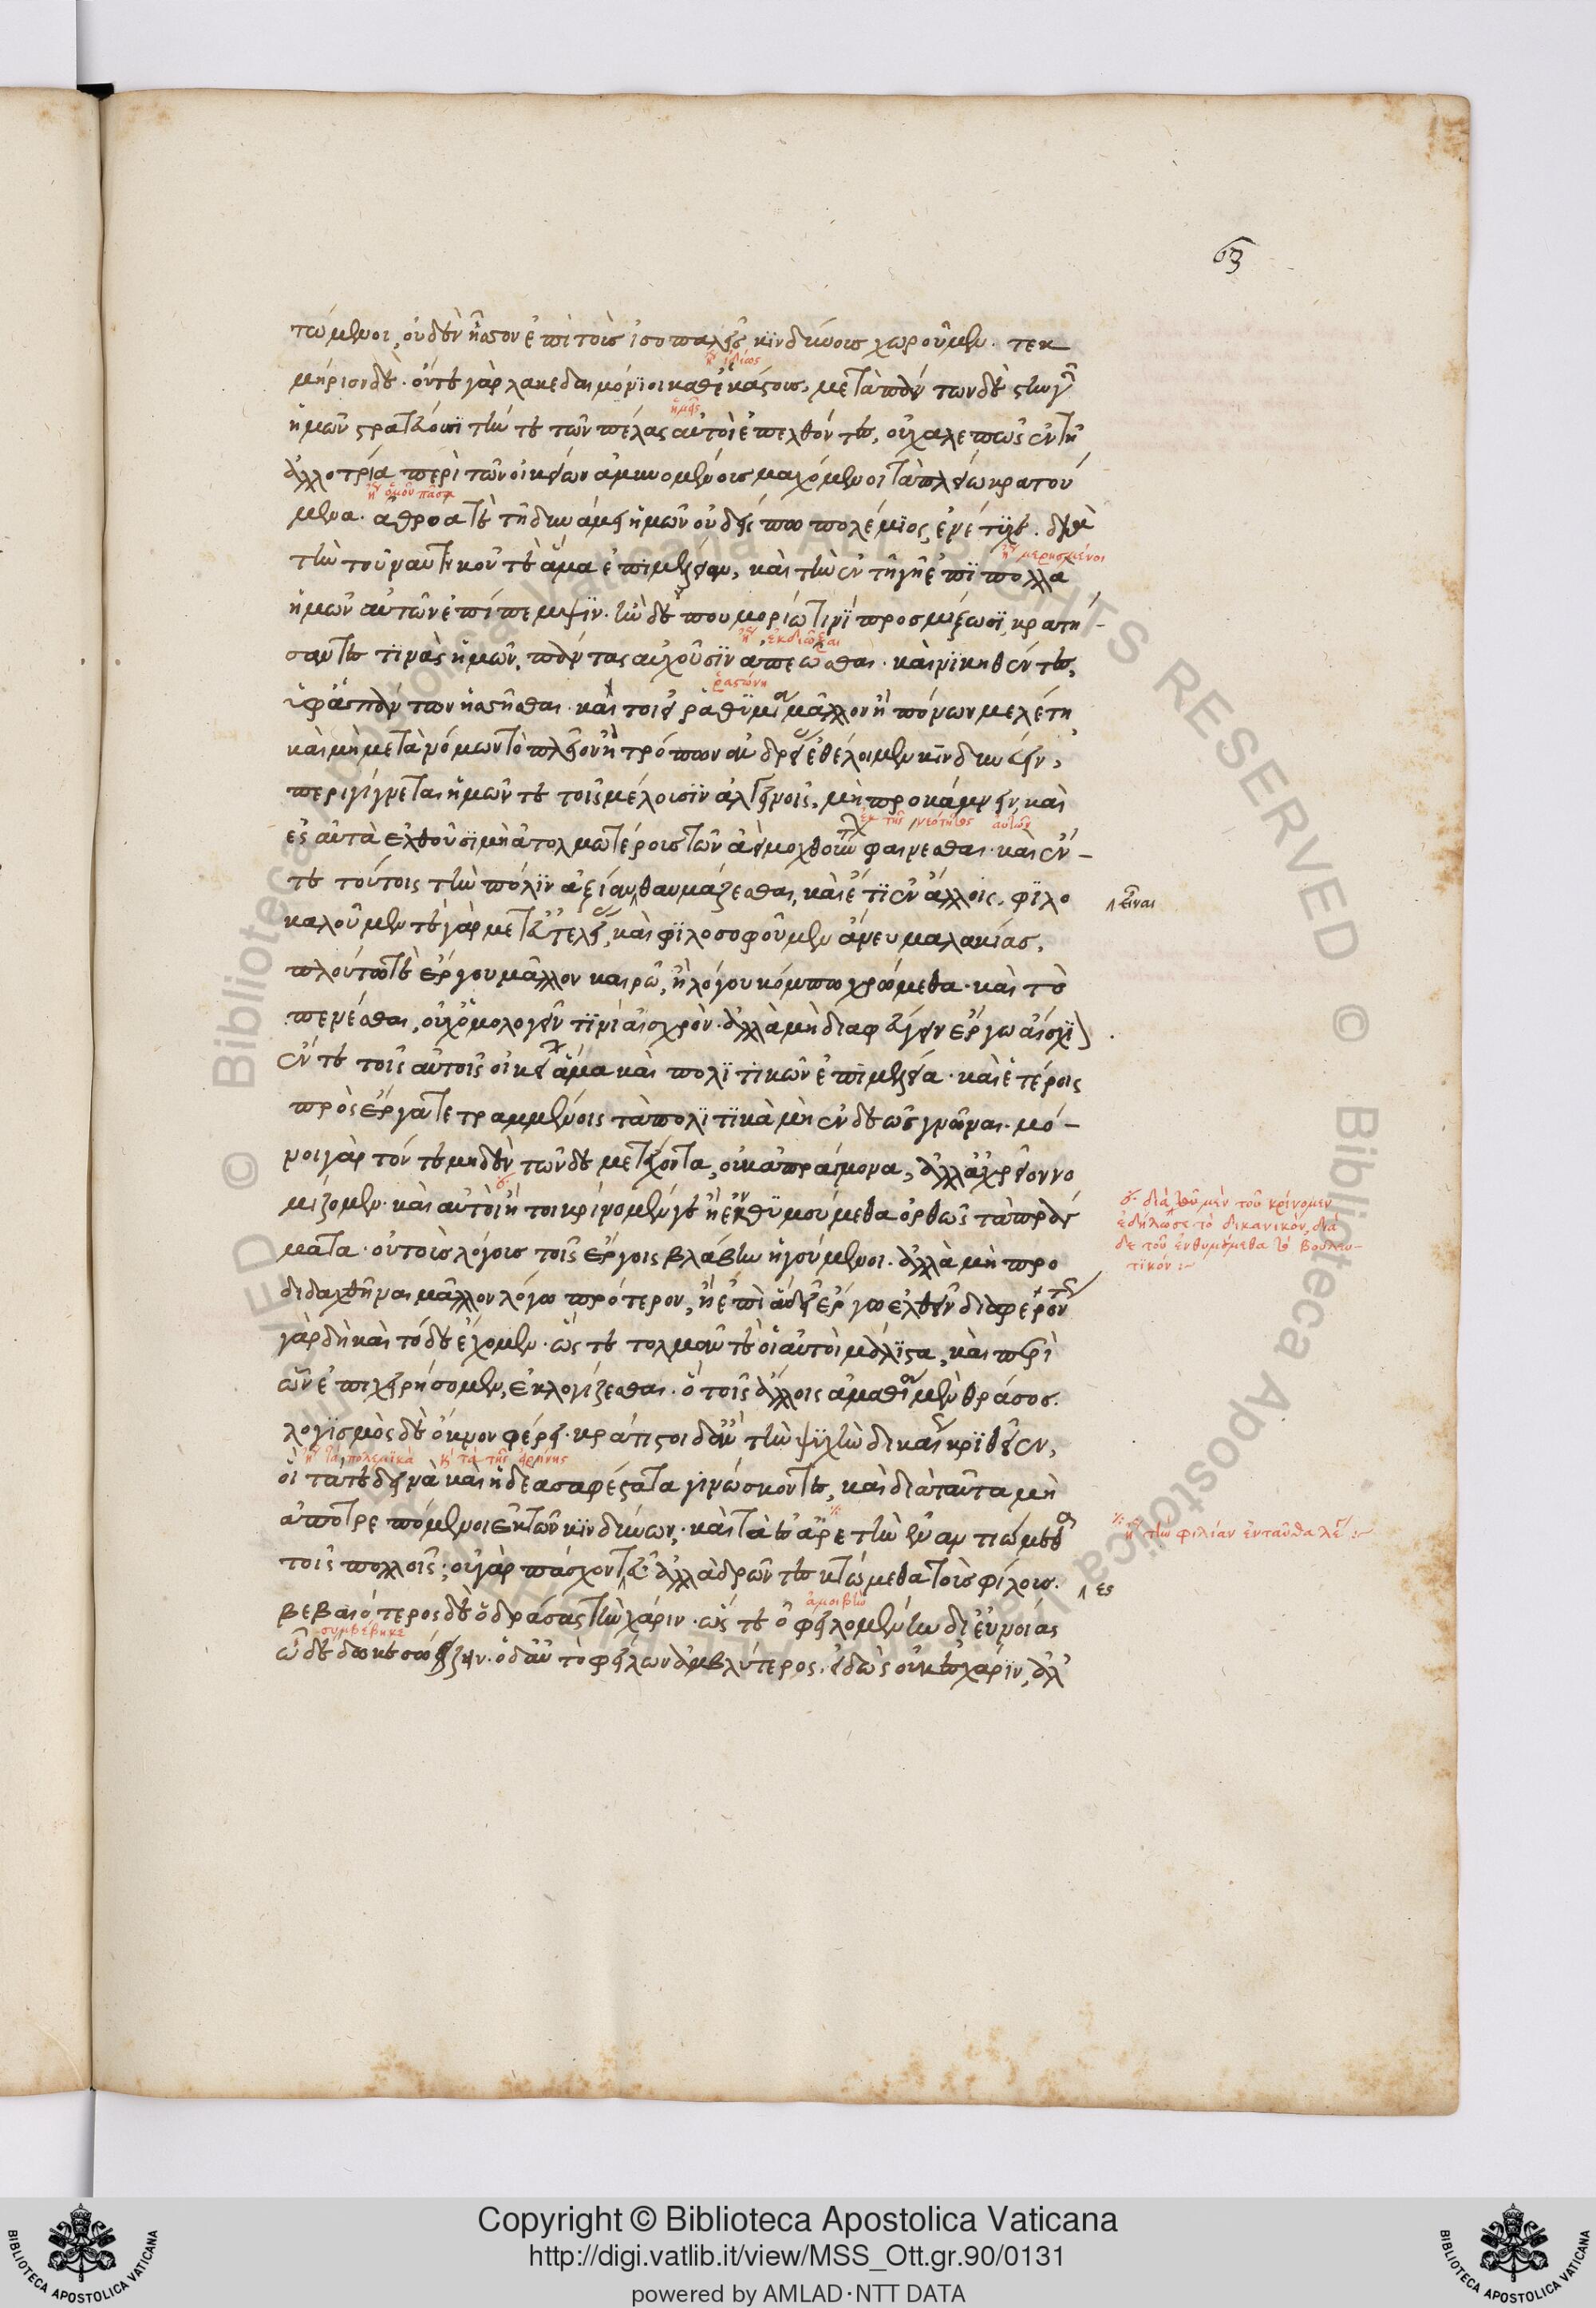 63
τώμενοι, οὐδὲν ἧσσον ἐπὶ τοὺς ἰσοπαλεῖς κινδύνους χωροῦμεν. τεκ
μήριον δέ. οὔτε γὰρ λακεδαιμόνιοι καθ' ἑκάστους, μετὰ πάντων δὲ ἐς τὴν γῆν
ἡμῶν στρατεύουσι τήν τε τῶν πέλας αὐτοὶ ἐπελθόντες, οὐ χαλεπῶς ἐν τῇ
ἀλλοτρία περὶ τῶν οἰκείων ἀμυνομένους μαχόμενοι τὰ πλείω κρατού
μενα. ἀθρόα τε τῇ δυνάμει ἡμῶν οὐδείς πω πολέμιος ἐνέτυχε. διὰ
τὴν τοῦ ναυτικοῦ τε ἅμα ἐπιμέλειαν, καὶ τὴν ἐν τῇ γῇ ἐπὶ πολλὰ
ἡμῶν αὐτῶν ἐπίπεμψιν. ἢν δέ που μορίω τινὶ προσμίξωσι, κρατή-
σαντές τινας ἡμῶν, πάντας αὐχοῦσιν ἀπεῶσθαι. καὶ νικηθέντες,
ὑφ' ἁπάντων ἡσσῆσθαι. καίτοι εἰ ῥαθυμία μᾶλλον ἢ πόνων μελέτη
καὶ μὴ μετὰ νόμων τὸ πλεῖον ἢ τρόπων ἀνδρείας ἐθέλοιμεν κινδυνεύειν,
περιγίγνεται ἡμῶν τε τοῖς μέλουσιν ἀλγεινοῖς, μὴ προκάμνειν, καὶ
ἐς αὐτὰ ἐλθοῦσι μὴ ἀτολμωτέρους τῶν ἀεὶ μοχθούντων φαίνεσθαι. καὶ ἔν-
τε τούτοις τὴν πόλιν ἀξίαν θαυμάζεσθαι, καὶ ἔτι ἐν ἄλλοις. φιλο
καλοῦμέν τε γὰρ μετ' εὐτελείας, καὶ φιλοσοφοῦμεν ἄνευ μαλακίας,
πλούτω τε ἔργου μᾶλλον καιρῶ, ἢ λόγου κόμπω χρώμεθα. καὶ τὸ
πένεσθαι, οὐχ ὁμολογεῖν τινὶ αἰσχρόν. ἀλλὰ μὴ διαφεύγειν ἔργω αἴσχιον
ἔν τε τοῖς αὐτοῖς οἰκείων ἅμα καὶ πολιτικῶν ἐπιμέλεια. καὶ ἑτέροις
πρὸς ἔργα τετραμμένοις τὰ πολιτικὰ μὴ ἐνδεῶς γνῶναι. μό-
νοι γὰρ τόν τε μηδὲν τῶνδε μετέχοντα, οὐκ ἀπράγμονα, ἀλλ' ἀχρεῖον νο
μίζομεν. καὶ αὐτοὶ ἤτοι κρίνομέν γε ἢ ἐνθυμούμεθα ὀρθῶς τὰ πράγ
ματα. οὐ τοὺς λόγους τοῖς ἔργοις βλάβην ἡγούμενοι. ἀλλὰ μὴ προ
διδαχθῆναι μᾶλλον λόγω πρότερον, ἢ ἐπὶ ἃ δεῖ ἔργω ἐλθεῖν διαφερόντως
γὰρ δὴ καὶ τόδε ἔχομεν. ὥς τε τολμᾶν τε οἱ αὐτοὶ μάλιστα, καὶ περὶ
ὧν ἐπιχειρήσομεν, ἐκλογίζεσθαι. ὃ τοῖς ἄλλοις ἀμαθία μὲν θράσος.
λογισμὸς δὲ ὄκνον φέρει. κράτιστοι δ' ἂν τὴν ψυχὴν δικαίως κριθεῖεν,
οἱ τά τε δεινὰ καὶ ἡδέα σαφέστατα γινώσκοντες, καὶ διὰ ταῦτα μὴ
ἀποτρεπόμενοι ἐκ τῶν κινδύνων. καὶ τὰ ἐς ἀρετὴν ἐναντιώμεθα
τοῖς πολλοῖς. οὐ γὰρ πάσχοντες εὖ ἀλλὰ δρῶντες κτώμεθα τοὺς φίλους.
βεβαιότερος δὲ ὁ δράσας τὴν χάριν. ὥς τε ὀφειλομένην δι' εὐνοίας
ὧ δέδωκε σώζειν. ὁ δ' ἀντοφείλων ἀμβλύτερος. εἰδὼς οὐκ ἐς χάριν, ἀλλ'
ἤγουν ἰδίως
ἡμεῖς
ἤγουν ὁμοῦ πᾶσα
ἤγουν μερισμένοι
ἤγουν ἐκδιῶξαι
ῥαστώνη
ἐκ τῆς νεότητος αὐτῶν
ἤγουν τὰ πολεμικὰ καὶ τὰ τῆς εἰρήνης
ἀμοιβὴν
συμβέβηκε
εἶναι
διὰ μὲν τοῦ κρίνομεν
ἐδήλωσε τὸ δικανικόν, διὰ
δε τοῦ ἐνθυμούμεθα τὸ βουλευ-
τικόν :~
ἤγουν τὴν φιλίαν ἐνταῦθα λέγει :~
ες
Copyright © Biblioteca Apostolica Vaticana
http://digi.vatlib.it/view/MSS_Ott.gr.90/0131
powered by AMLAD·NTT DATA
BIBLIOTECA APOSTOLICA VATICANA
BIBLIOTECA APOSTOLICA VATICANA